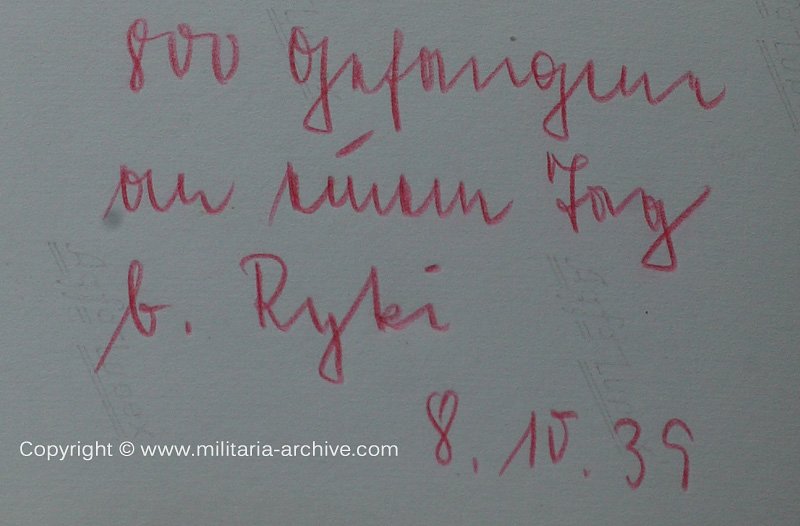 800 Gefangene
an einem Tag
b. Ryki
8. 10. 39
Copyright © www.militaria-archive.com